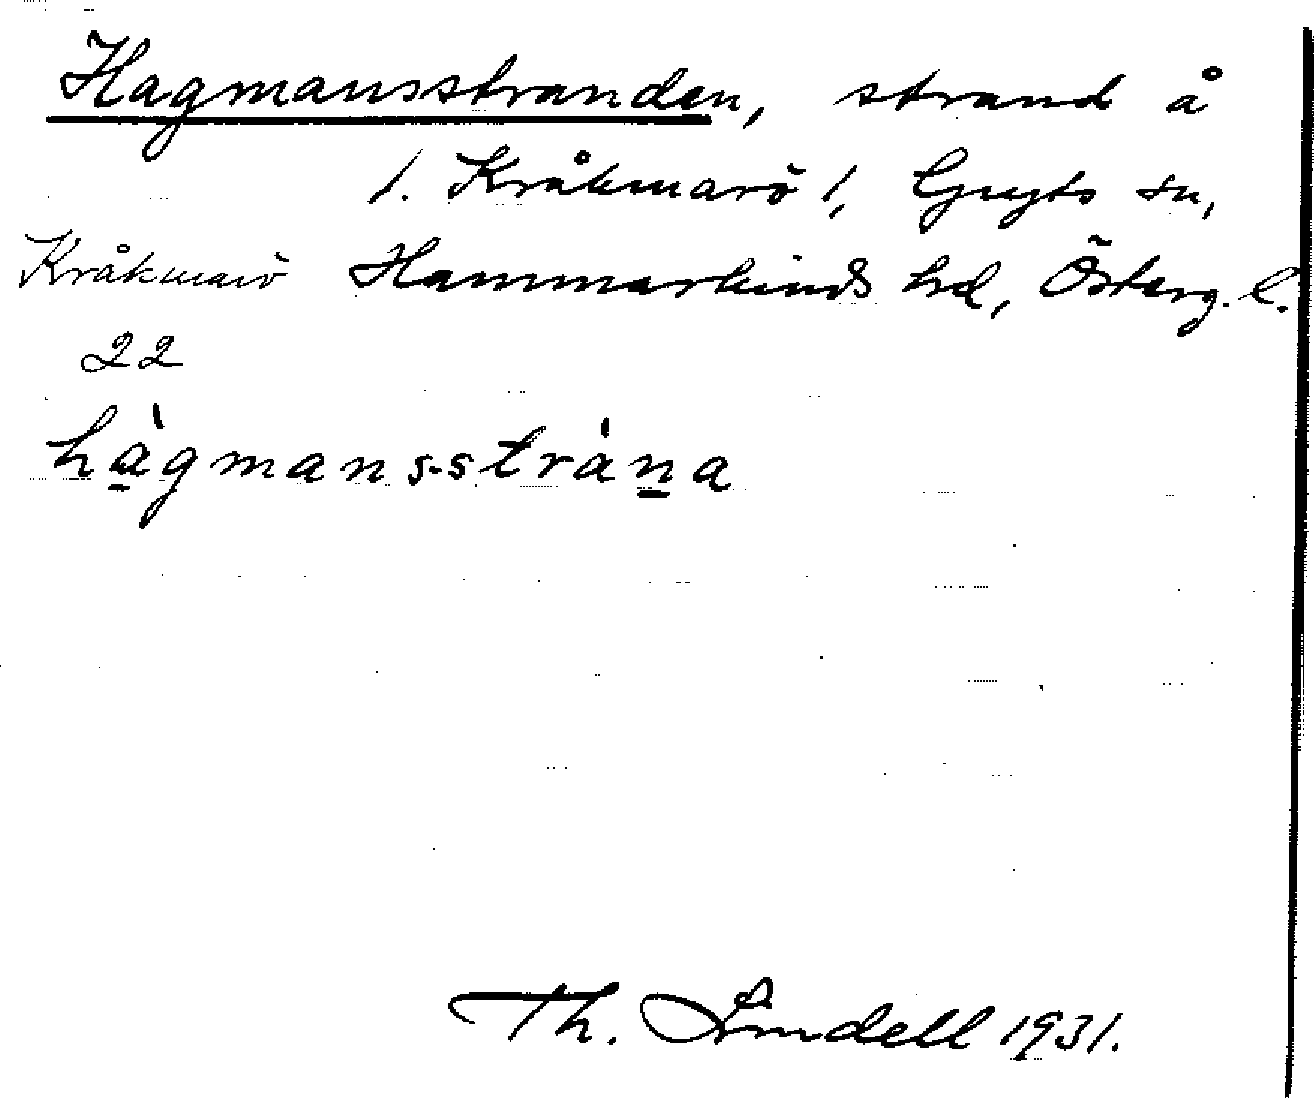 Hagmansstranden, strand å
1. Kråkmarö 1, Gryts sn,
Kråkmarö Hammarkinds hd, Österg. l.
22
hàgmans-strána
Th. Lindell 1931.